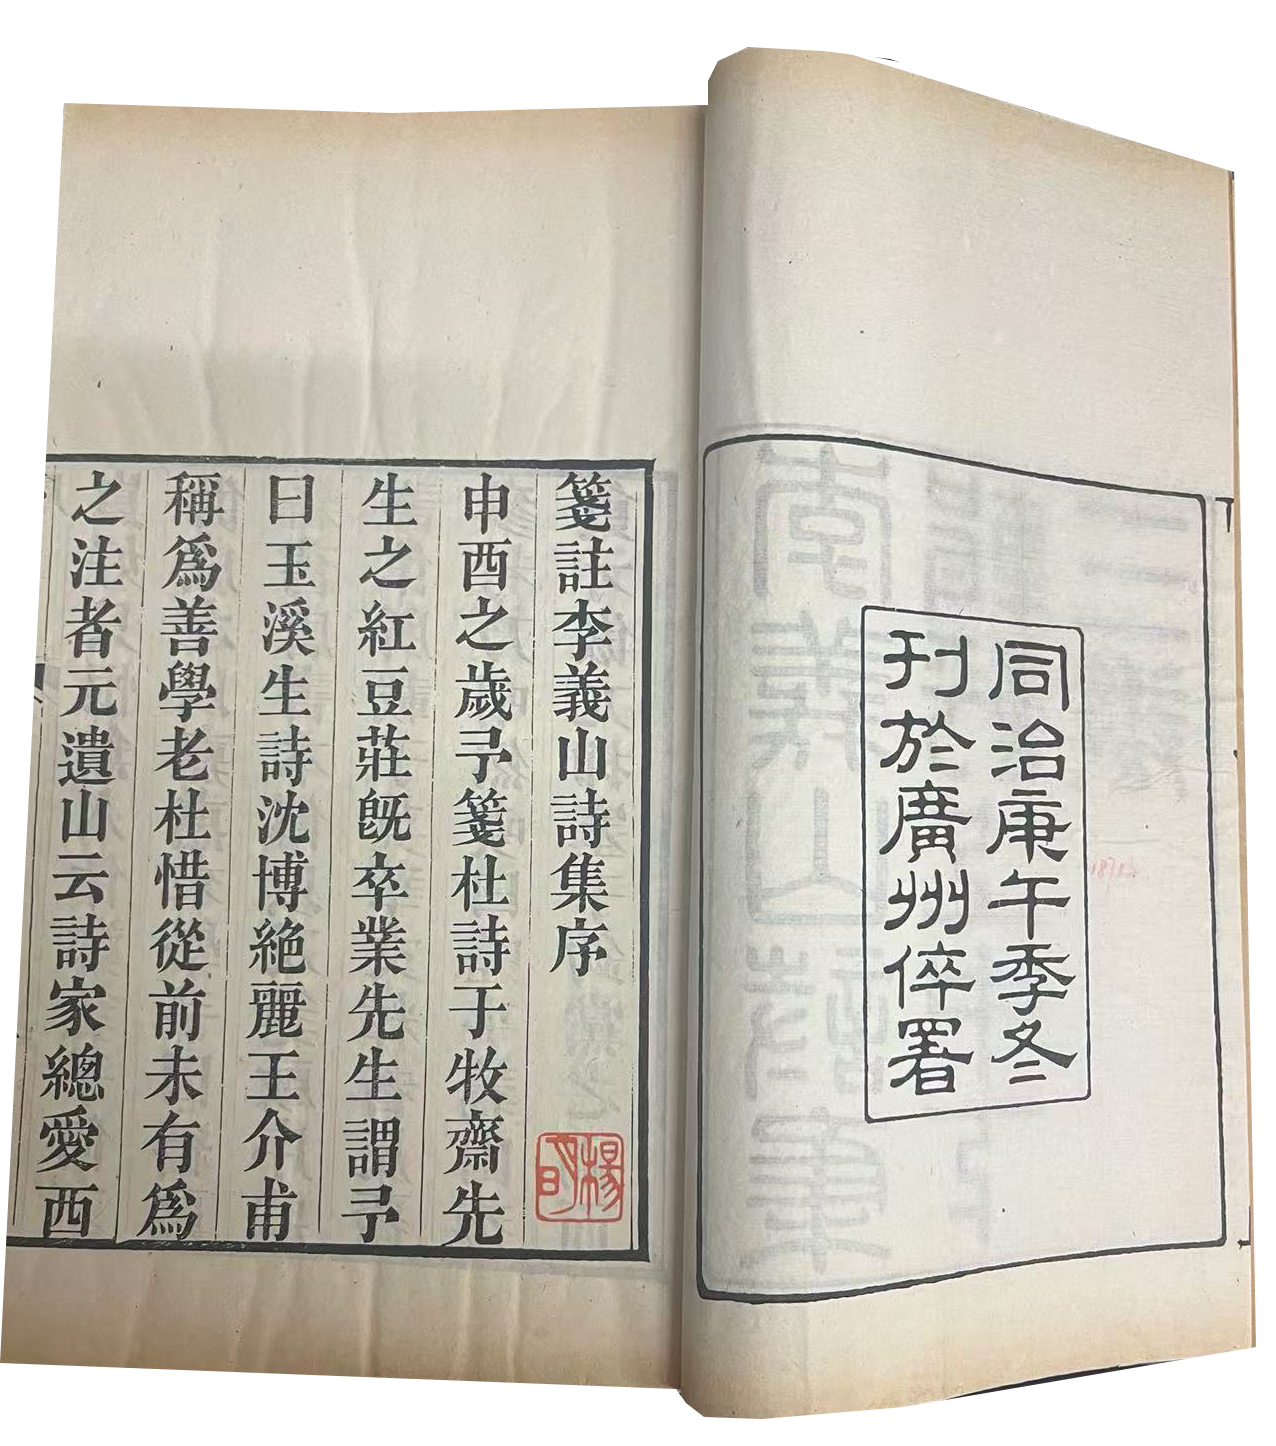 同治庚午季冬
刊於廣州倅署
箋註李義山詩集序
申酉之歲予箋杜詩于牧齋先
生之紅豆莊既卒業先生謂予
曰玉溪生詩沈博絕麗王介甫
稱爲善學老杜惜從前未有爲
之注者元遺山云詩家總愛西